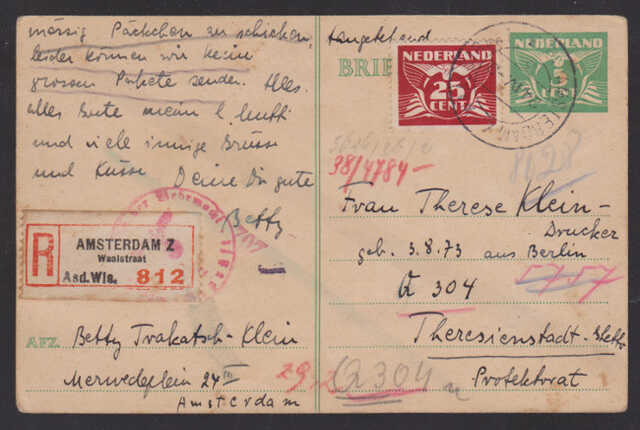 mässig Päckchen zu schicken,
leider können wir keine
grossen Pakete senden. Alles
alles Gute mein l. Mutti
und viele innige Grüsse
und Küsse Deine Dir gute
Betty
R
AMSTERDAM Z
Waalstraat
Asd.Wls. 812
AFZ. Betty Trakatsch-Klein
Merwedeplein 24 III
Amsterdam
aangetekend
BRIE
NEDERLAND
25
CENT
NEDERLAND
5
CENT
8028
38/4784-
Frau Therese Klein-
Drucker
geb. 3.8.73 aus Berlin
5757
Q 304
Theresienstadt-Ghetto
Protektorat
29
Q 304